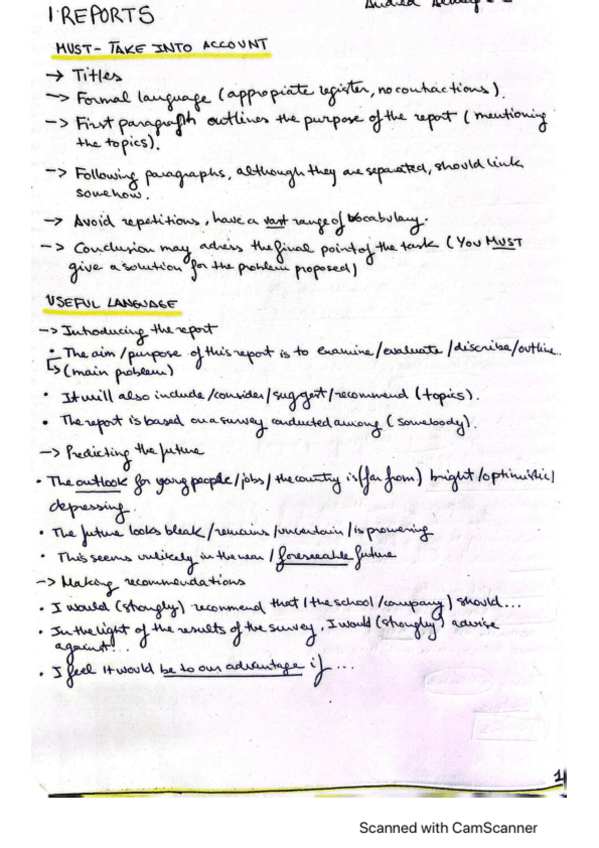 1·REPORTS
MUST- TAKE INTO ACCOUNT
-> Titles
-> Formal language (appropiate register, no contractions).
-> First paragraph outlines the purpose of the report (mentioning
the topics).
-> Following paragraphs, although they are separated, should link
somehow.
-> Avoid repetitions, have a vast range of vocabulary.
-> Conclusion may adress the final point of the task (YOU MUST
give a solution for the problem proposed)
USEFUL LANGUAGE
-> Introducing the report
· The aim/purpose of this report is to examine/evaluate/discribe/outline..
(main problem)
· It will also include/consider/suggest/recommend (topics).
· The report is based on a survey conducted among (somebody).
-> Predicting the future
· The outlook for young people/jobs/the country is (far from) bright/optimistic/
depressing.
· The future looks bleak/remains/uncertain/is promering
· This seems unlikely in the near/foreseeable future
-> Making recommendations
· I would (strongly) recommend that (the school/company) should...
· In the light of the results of the survey, I would (strongly) advise
against...
· I feel it would be to our advantage if ...
1
Scanned with CamScanner